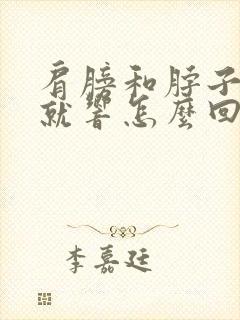 肩膀和脖子
就響怎麼回
李嘉廷